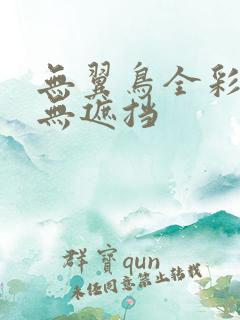 無翼鳥全彩
無遮挡
群寳qun
未任同意禁止转载